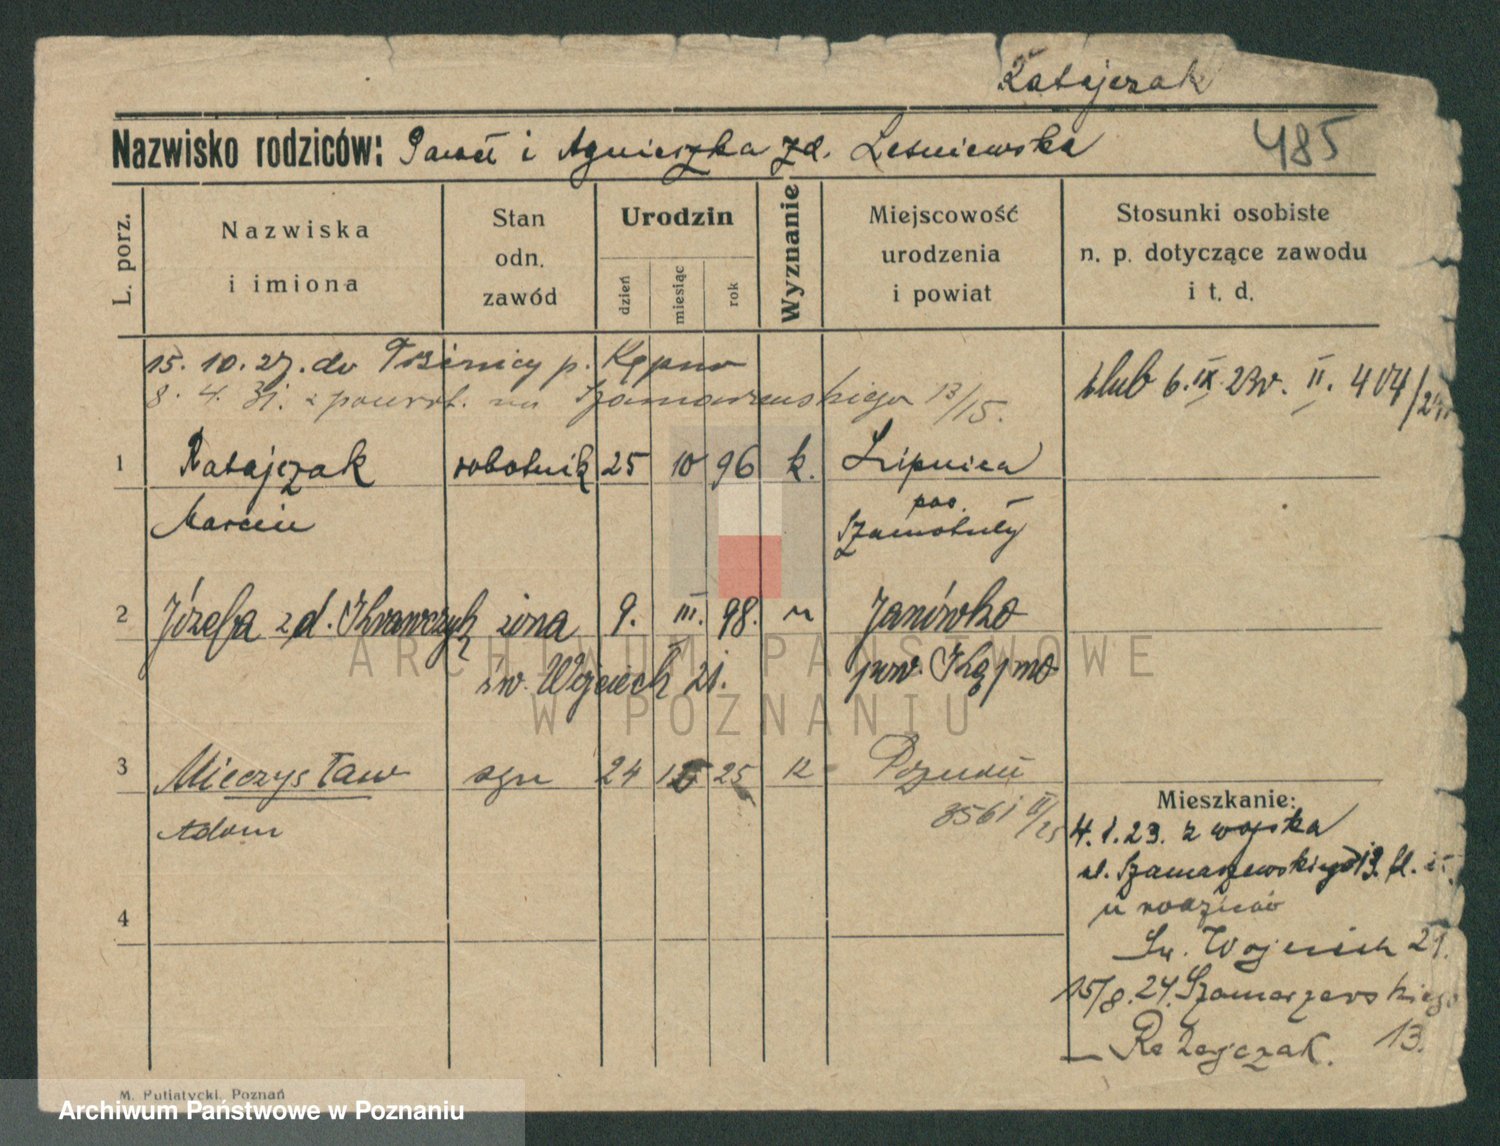 Ratajczak
485
Nazwisko rodziców: Paweł i Agnieszka zd. Leśniewska
L. porz.
Nazwiska i imiona
Stan odn. zawód
Urodzin
dzień
miesiąc
rok
Wyznanie
Miejscowość urodzenia i powiat
Stosunki osobiste n. p. dotyczące zawodu i t. d.
15. 10. 27. do p. Kępno
8. 4. 31. z powrot. na Szamarzewskiego 13/15.
ślub 6. IX. 23 w. II. 404/23
1 Ratajczak robotnik 25 10 96 k. Lipnica
Marcin
pow.
Szamotuły
2 Józefa zd. Krawczyk żona 9. III. 98. Janówka
św. Wojciech 21. pow. Kępno
3 Mieczysław syn 24 25 Poznań
Adam
3561 II/25
4
Mieszkanie:
4. 1. 23. z wojska
ul. Szamarzewskiego 13.
u rodziców
Św. Wojciech 21.
15/8. 24. Szamarzewskiego
13.
Ratajczak.
M. Putiatycki, Poznań
ARCHIWUM PAŃSTWOWE
W POZNANIU
Archiwum Państwowe w Poznaniu